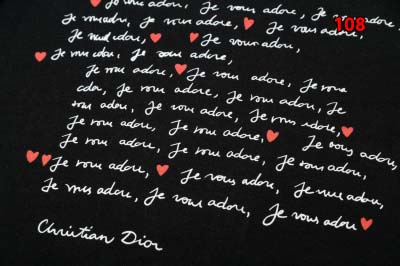 Je vous adore, Je vous adore, Je vous adore,
Je vous adore, Je vous adore, Je vous adore,
Je vous adore, Je vous adore,
Je vous adore, Je vous adore,
Je vous adore, Je vous adore, Je vous
adore, Je vous adore, Je vous adore, Je
vous adore, Je vous adore, Je vous adore,
Je vous adore, Je vous adore, Je vous adore,
Je vous adore, Je vous adore, Je vous adore,
Je vous adore, Je vous adore, Je vous adore,
Je vous adore, Je vous adore, Je vous adore
Christian Dior
108